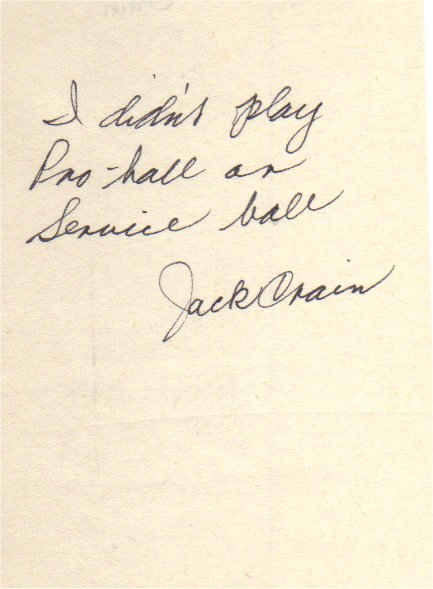 I didn't play
Pro-ball or
Service ball
Jack Crain